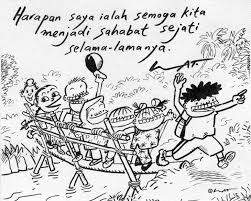 Harapan saya ialah semoga kita
menjadi sahabat sejati
selama-lamanya.
LAT.